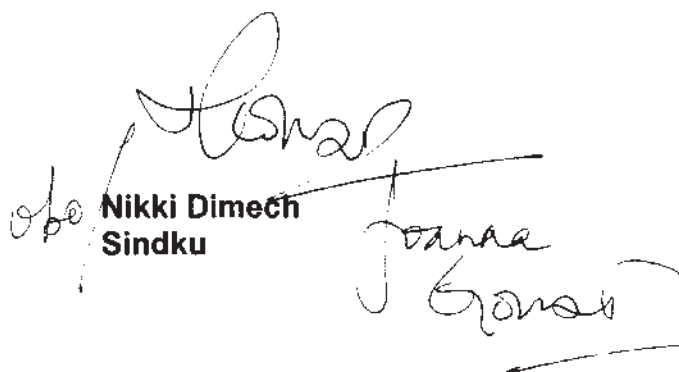 obo Nikki Dimech
Sindku
Joanna
Gonzi